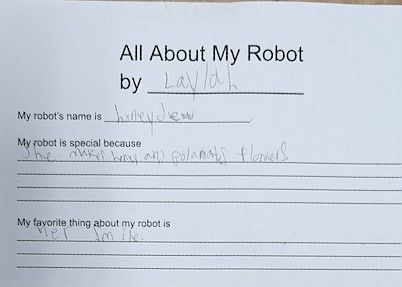 All About My Robot
by Laylah
My robot's name is honeydew.
My robot is special because
She makes honey and polanates flowers.
My favorite thing about my robot is
Her Smile.